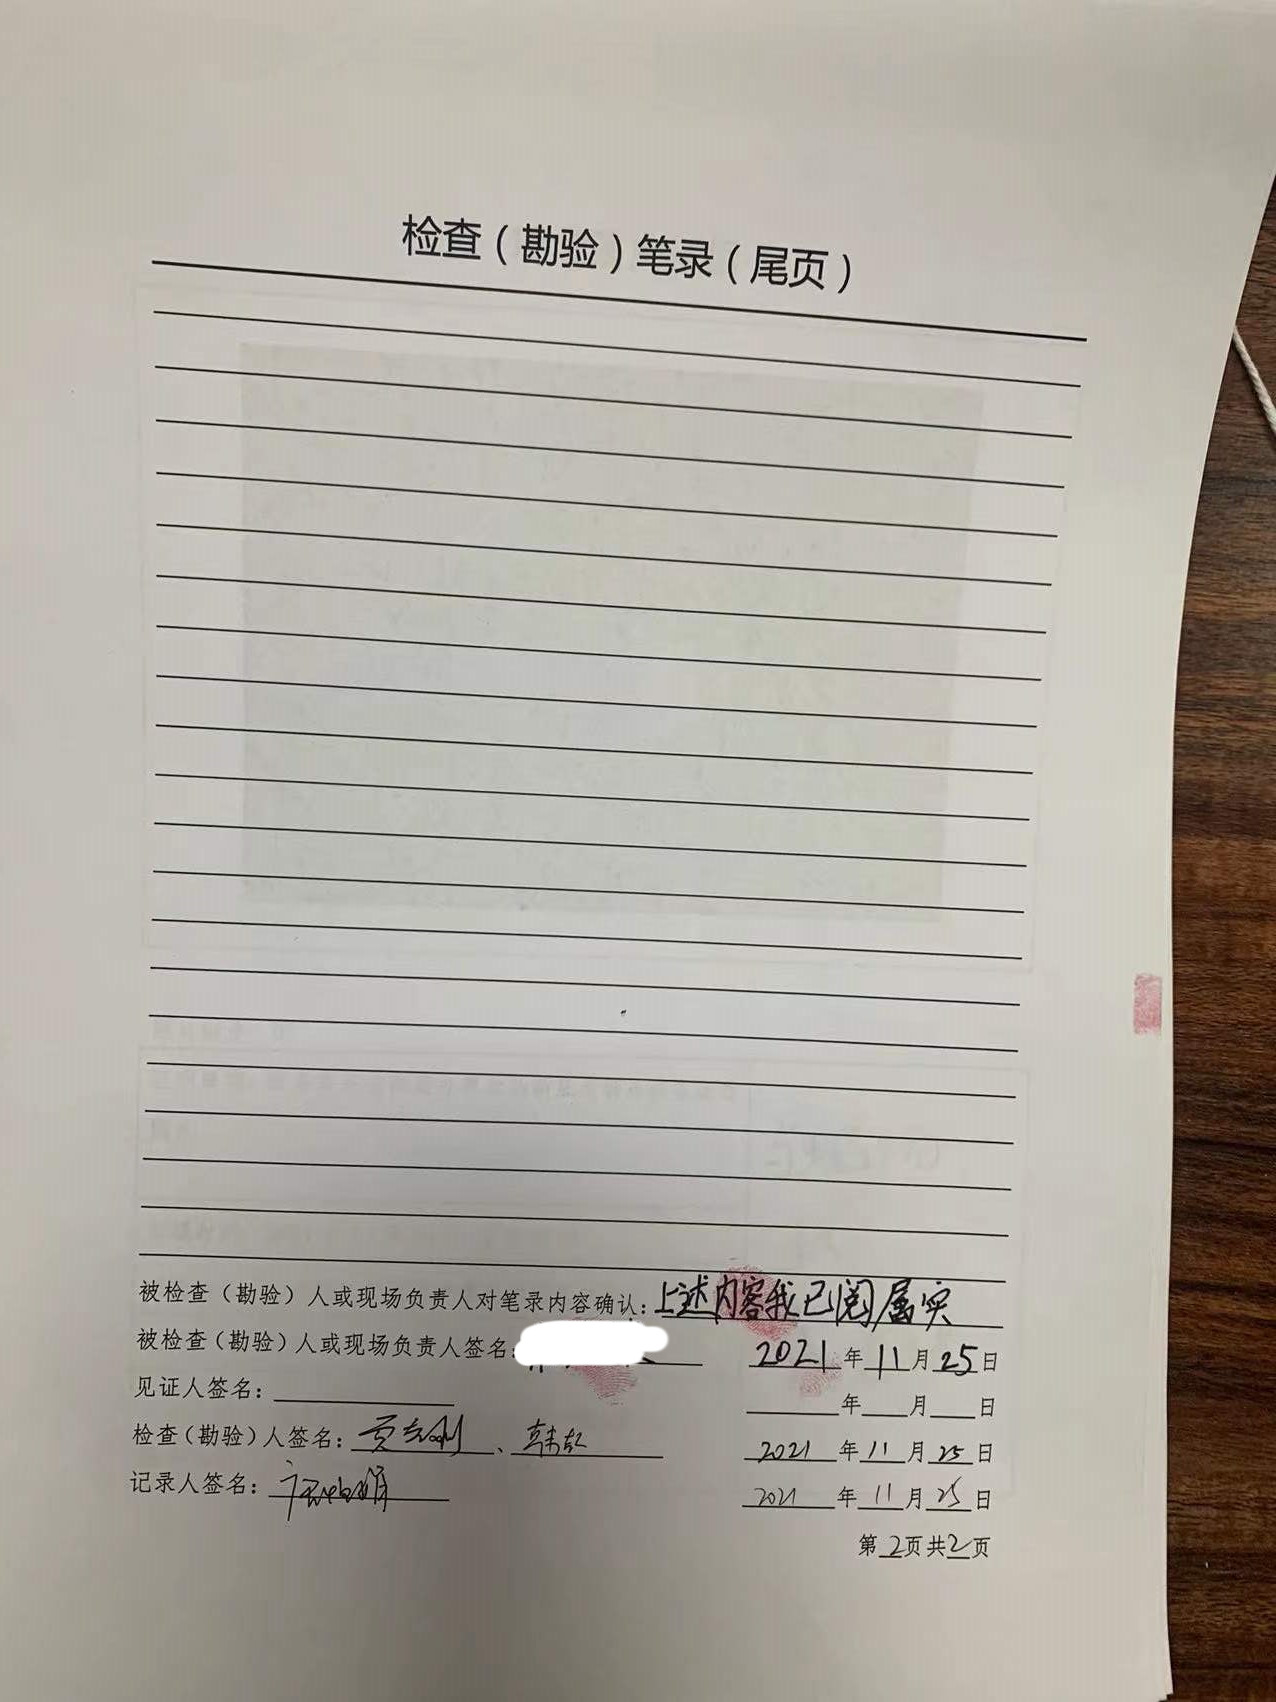 检查（勘验）笔录（尾页）
被检查（勘验）人或现场负责人对笔录内容确认：上述内容我已阅属实
被检查（勘验）人或现场负责人签名： 2021年11月25日
见证人签名： 年 月 日
检查（勘验）人签名： 、韩 2021年11月25日
记录人签名： 2021年11月25日
第2页共2页